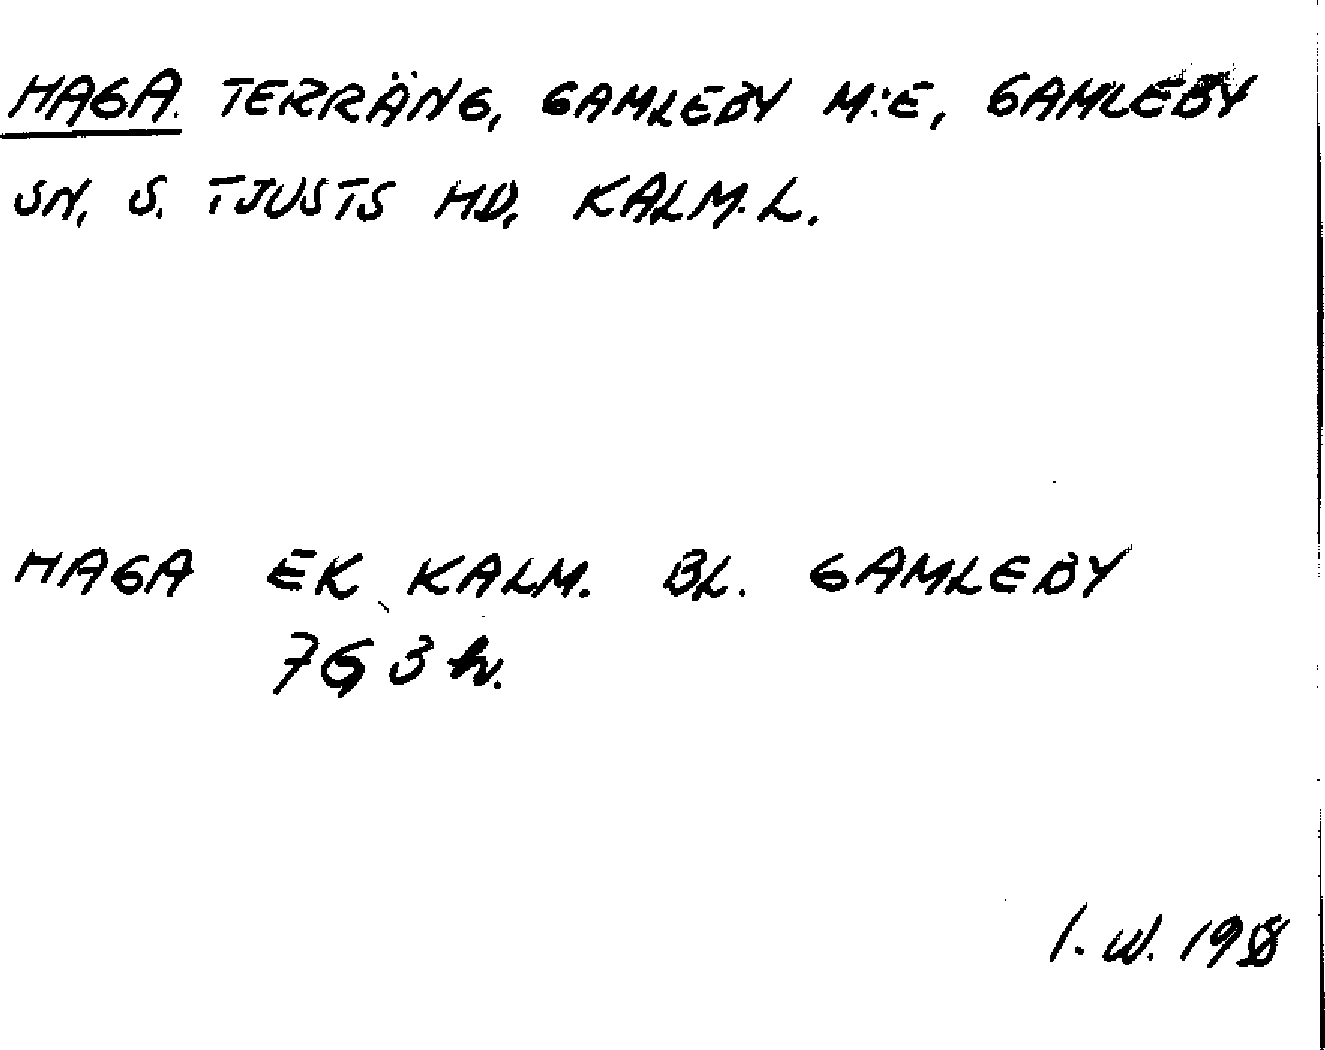 HAGA. TERRÄNG, GAMLEBY M:E, GAMLEBY
SN, S. TJUSTS HD, KALM. L.
HAGA EK KALM. BL. GAMLEBY
7G 3h.
I. W.